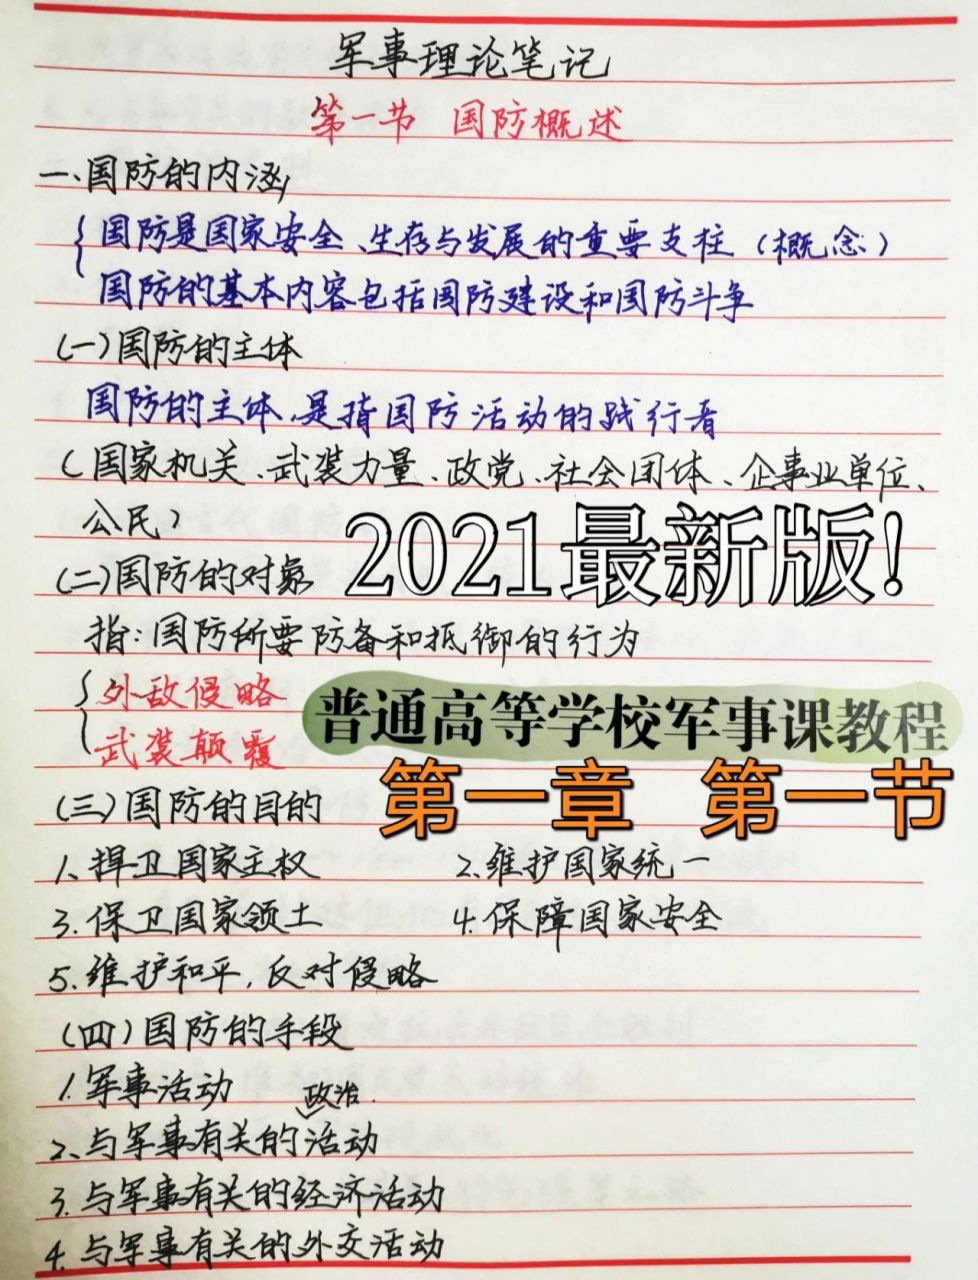 军事理论笔记
第一节 国防概述
一、国防的内涵
国防是国家安全、生存与发展的重要支柱（概念）
国防的基本内容包括国防建设和国防斗争
(一)国防的主体
国防的主体,是指国防活动的践行者
(国家机关、武装力量、政党、社会团体、企事业单位、
公民)
2021最新版!
(二)国防的对象
指:国防所要防备和抵御的行为
外敌侵略
武装颠覆
普通高等学校军事课教程
第一章 第一节
(三)国防的目的
1.捍卫国家主权 2.维护国家统一
3.保卫国家领土 4.保障国家安全
5.维护和平,反对侵略
(四)国防的手段
1.军事活动
政治
2.与军事有关的活动
3.与军事有关的经济活动
4.与军事有关的外交活动